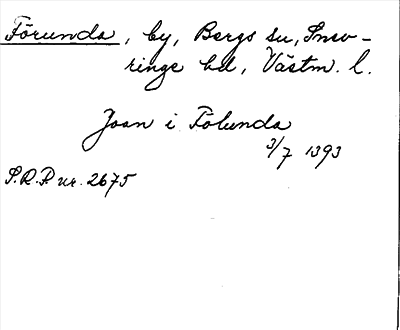 Förunda, by, Bergs sn, Snev-
ringe hd, Västm. l.
Joan i Folunda
3/7 1393
S.R.P. nr. 2675